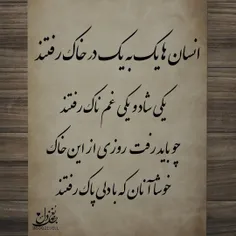 انسان ها یک به یک در خاک رفتند
یکی شاد و یکی غم ناک رفتند
چو باید رفت روزی از این خاک
خوشا آنان که با دلی پاک رفتند